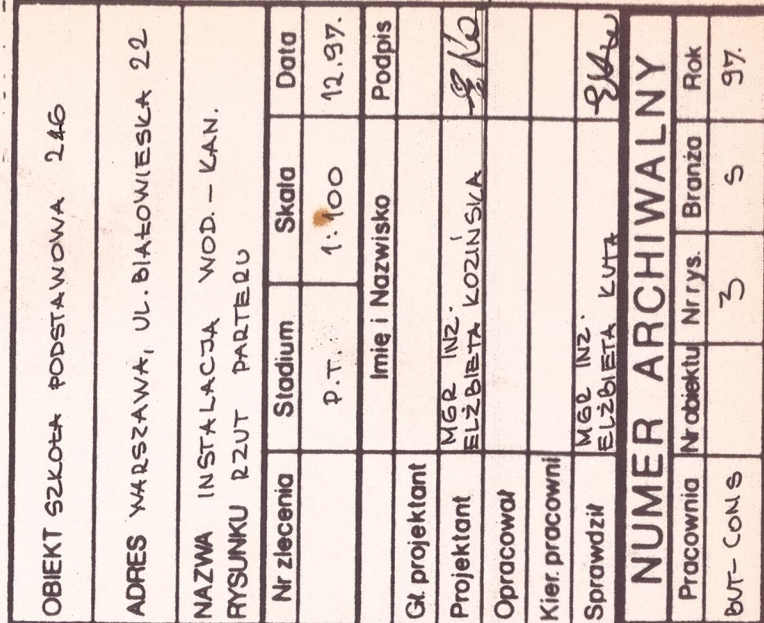 OBIEKT SZKOŁA PODSTAWOWA 246
ADRES WARSZAWA, UL. BIAŁOWIESKA 22
NAZWA INSTALACJA WOD. - KAN.
RYSUNKU RZUT PARTERU
Nr zlecenia Stadium Skala Data
P.T. 1:100 12.97.
Imię i Nazwisko Podpis
Gł. projektant
Projektant MGR INŻ. ELŻBIETA KOZIŃSKA
Opracował
Kier. pracowni
Sprawdził MGR INŻ. ELŻBIETA KUTA
NUMER ARCHIWALNY
Pracownia Nr obiektu Nr rys. Branża Rok
BUT-CONS 3 S 97.